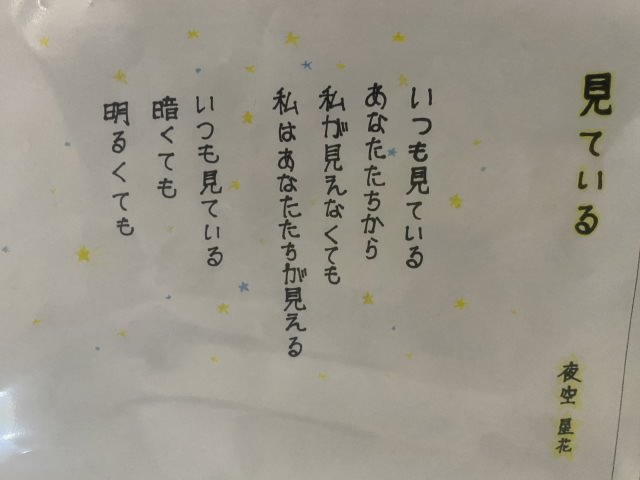 見ている
夜空 星花
いつも見ている
あなたたちから
私が見えなくても
私はあなたたちが見える
いつも見ている
暗くても
明るくても